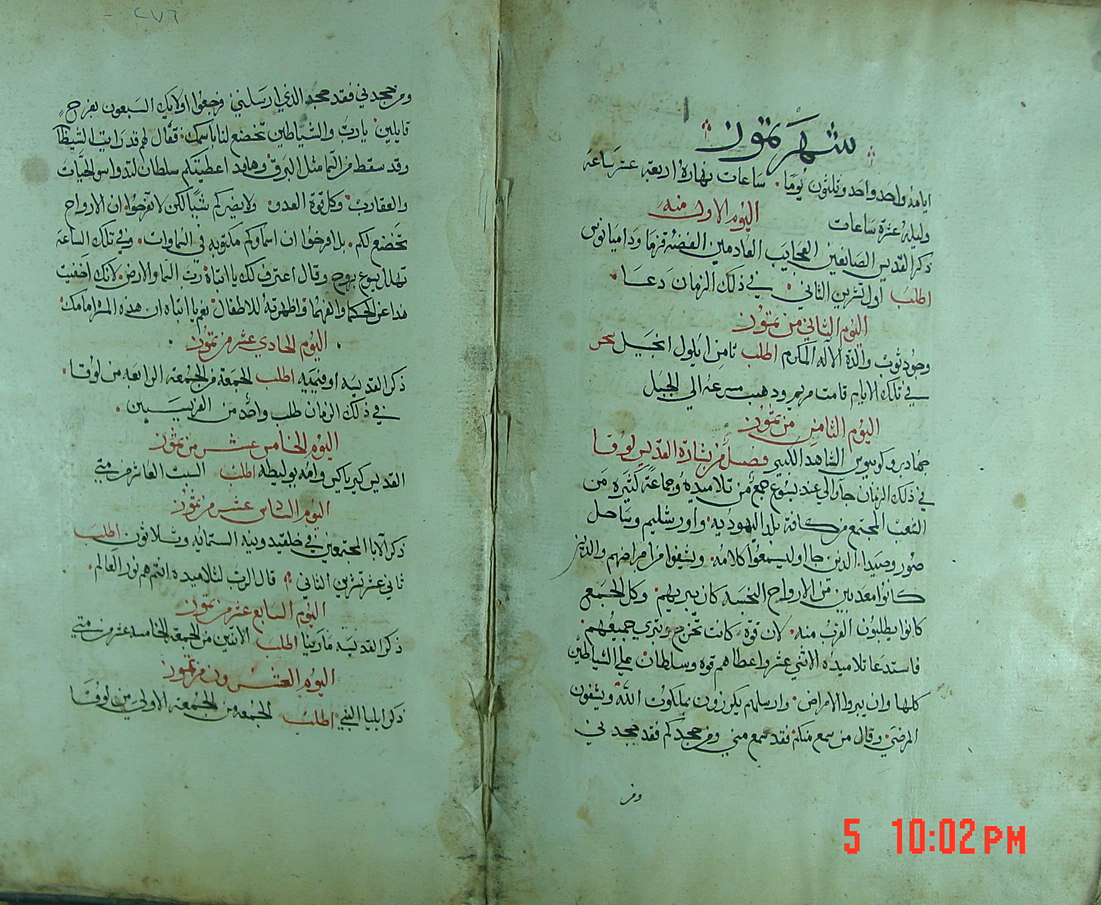 شهر تموز
ايامه واحد واحد وثلثون يوما. ساعات نهاره اربعة عشر ساعة
وليله عشرة ساعات
اليوم الاول منه
ذكر القديسين الصانعين العجايب العادمين الفضه قزما وداميانوس
اطلب اول تشرين الثاني. في ذلك الزمان دعا.
اليوم الثاني من تموز
وجود ثوب والدة الاله المكرم اطلب ثامن ايلول انجيل سحر
في تلك الايام قامت مريم وذهبت مسرعه الي الجبل
اليوم الثامن من تموز
الشاهد الكبير فصل من بشارة القديس لوقا
في ذلك الزمان جا الي عند يسوع جمع من تلاميذه وجماعة كثيره من
الشعب المجتمع من كافة بلد اليهوديه. واورشليم وساحل
صور وصيدا. الذين جااو ليسمعوا كلامه. ويشفوا من امراضهم والذين
كانوا معذبين من الارواح النجسه كان يبريهم. وكل الجمع
كانوا يطلبون القرب منه. لان قوة كانت تخرج وتبري جميعهم.
فاستدعا تلاميذه الاثني عشر واعطاهم قوه وسلطان علي الشياطين
كلها وان يبروا الامراض. وارسلهم يكرزون بملكوت الله ويشفون
المرضي. وقال من سمع منكم فقد سمع مني ومن جحدكم فقد جحدني
ومن
٢٧٦
ومن جحدني فقد جحد الذي ارسلني ورجعوا اولايك السبعون بفرح
قايلين يارب والشياطين تخضع لنا باسمك. فقال لهم قد رايت الشيطان
وقد سقط من السما مثل البرق وهانذا اعطيتكم سلطان لتدواس الحيات
والعقارب. وكل قوة العدو. ولا يضركم شيئا لكن لا تفرحوا ان الارواح
تخضع لكم. بل افرحوا ان اسماوكم مكتوبه في السماوات. وفي تلك الساعة
تهلل يسوع بروح وقال اعترف لك يا ابتاه رب السما والارض. لانك اخفيت
هذا عن الحكما والفهما واظهرته للاطفال نعم يا ابتاه ان هذه المسرة امامك
اليوم الحادي عشر من تموز
ذكر القديسه اوفيميه اطلب الجمعة من الجمعة الرابعه من لوقا.
في ذلك الزمان طلب واحد من الفريسيين.
اليوم الخامس عشر من تموز
القديس كيرياكس وامه يوليطه اطلب السبت العاشر من متي
اليوم السادس عشر من تموز
ذكر الابا المجتمعين في خلقيدونيه الستمايه وثلاثون اطلب
ثاني عشر تشرين الثاني. قال الرب لتلاميذه انتم هم نور العالم.
اليوم السابع عشر من تموز
ذكر القديسه مارينا اطلب الاثنين من الجمعة الخامسة عشر من متي
اليوم العشرون من تموز
ذكر ايليا النبي اطلب الجمعه من الجمعة الاولي من لوقا
5 10:02 PM